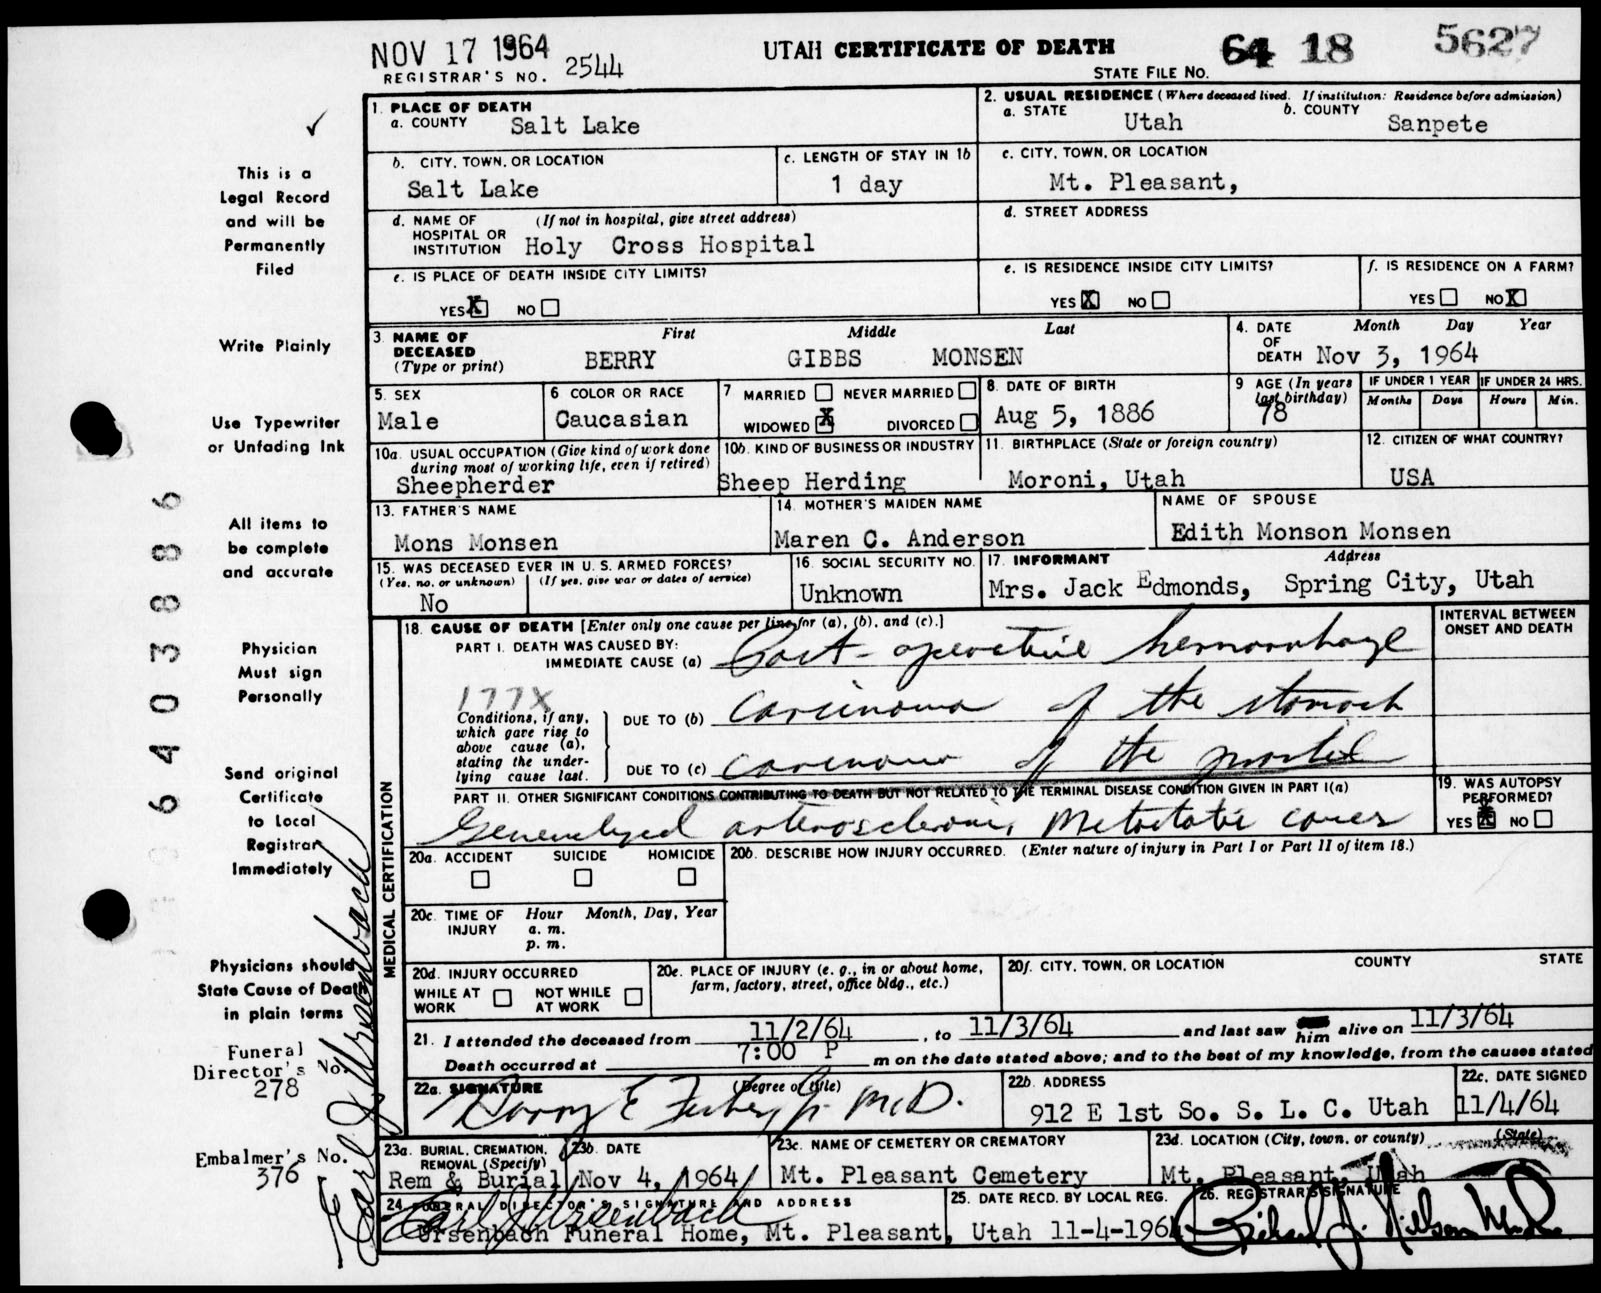 NOV 17 1964
REGISTRAR'S NO. 2544
UTAH CERTIFICATE OF DEATH
STATE FILE NO. 64 18 5627
1. PLACE OF DEATH
a. COUNTY Salt Lake
2. USUAL RESIDENCE (Where deceased lived. If institution: Residence before admission)
a. STATE Utah b. COUNTY Sanpete
b. CITY, TOWN, OR LOCATION Salt Lake
c. LENGTH OF STAY IN 1b 1 day
c. CITY, TOWN, OR LOCATION
Mt. Pleasant,
d. NAME OF HOSPITAL OR INSTITUTION (If not in hospital, give street address)
Holy Cross Hospital
d. STREET ADDRESS
e. IS PLACE OF DEATH INSIDE CITY LIMITS?
YES X NO
e. IS RESIDENCE INSIDE CITY LIMITS?
YES X NO
f. IS RESIDENCE ON A FARM?
YES NO X
3. NAME OF DECEASED (Type or print)
First Middle Last
BERRY GIBBS MONSEN
4. DATE OF DEATH Month Day Year
Nov 3, 1964
5. SEX
Male
6 COLOR OR RACE
Caucasian
7 MARRIED NEVER MARRIED
WIDOWED X DIVORCED
8. DATE OF BIRTH
Aug 5, 1886
9 AGE (In years last birthday)
78
IF UNDER 1 YEAR IF UNDER 24 HRS.
Months Days Hours Min.
10a. USUAL OCCUPATION (Give kind of work done during most of working life, even if retired)
Sheepherder
10b. KIND OF BUSINESS OR INDUSTRY
Sheep Herding
11. BIRTHPLACE (State or foreign country)
Moroni, Utah
12. CITIZEN OF WHAT COUNTRY?
USA
13. FATHER'S NAME
Mons Monsen
14. MOTHER'S MAIDEN NAME
Maren C. Anderson
NAME OF SPOUSE
Edith Monson Monsen
15. WAS DECEASED EVER IN U.S. ARMED FORCES?
(Yes, no, or unknown) (If yes, give war or dates of service)
No
16. SOCIAL SECURITY NO.
Unknown
17. INFORMANT Address
Mrs. Jack Edmonds, Spring City, Utah
MEDICAL CERTIFICATION
18. CAUSE OF DEATH [Enter only one cause per line for (a), (b), and (c).]
INTERVAL BETWEEN ONSET AND DEATH
PART I. DEATH WAS CAUSED BY:
IMMEDIATE CAUSE (a) Post-operative hemorrhage
177X
Conditions, if any, which gave rise to above cause (a), stating the underlying cause last.
DUE TO (b) Carcinoma of the stomach
DUE TO (c) Carcinoma of the prostate
PART II. OTHER SIGNIFICANT CONDITIONS CONTRIBUTING TO DEATH BUT NOT RELATED TO THE TERMINAL DISEASE CONDITION GIVEN IN PART I(a)
Generalized arteriosclerosis, Metastatic cancer
19. WAS AUTOPSY PERFORMED?
YES X NO
20a. ACCIDENT SUICIDE HOMICIDE
20b. DESCRIBE HOW INJURY OCCURRED. (Enter nature of injury in Part I or Part II of item 18.)
20c. TIME OF INJURY Hour Month, Day, Year
a. m.
p. m.
20d. INJURY OCCURRED
WHILE AT WORK NOT WHILE AT WORK
20e. PLACE OF INJURY (e. g., in or about home, farm, factory, street, office bldg., etc.)
20f. CITY, TOWN, OR LOCATION COUNTY STATE
21. I attended the deceased from 11/2/64, to 11/3/64 and last saw him alive on 11/3/64
Death occurred at 7:00 P m on the date stated above; and to the best of my knowledge, from the causes stated
22a. SIGNATURE (Degree or title)
M.D.
22b. ADDRESS
912 E 1st So. S. L. C. Utah
22c. DATE SIGNED
11/4/64
23a. BURIAL, CREMATION, REMOVAL (Specify)
Rem & Burial
23b. DATE
Nov 4, 1964
23c. NAME OF CEMETERY OR CREMATORY
Mt. Pleasant Cemetery
23d. LOCATION (City, town, or county) (State)
Mt. Pleasant, Utah
24. FUNERAL DIRECTOR'S SIGNATURE AND ADDRESS
Earl J. Ursenbach
Ursenbach Funeral Home, Mt. Pleasant, Utah
25. DATE RECD. BY LOCAL REG.
11-4-1964
26. REGISTRAR'S SIGNATURE
This is a
Legal Record
and will be
Permanently
Filed
Write Plainly
Use Typewriter
or Unfading Ink
All items to
be complete
and accurate
Physician
Must sign
Personally
Send original
Certificate
to Local
Registrar
Immediately
Physicians should
State Cause of Death
in plain terms
Funeral
Director's No.
278
Embalmer's No.
376
Earl J. Ursenbach